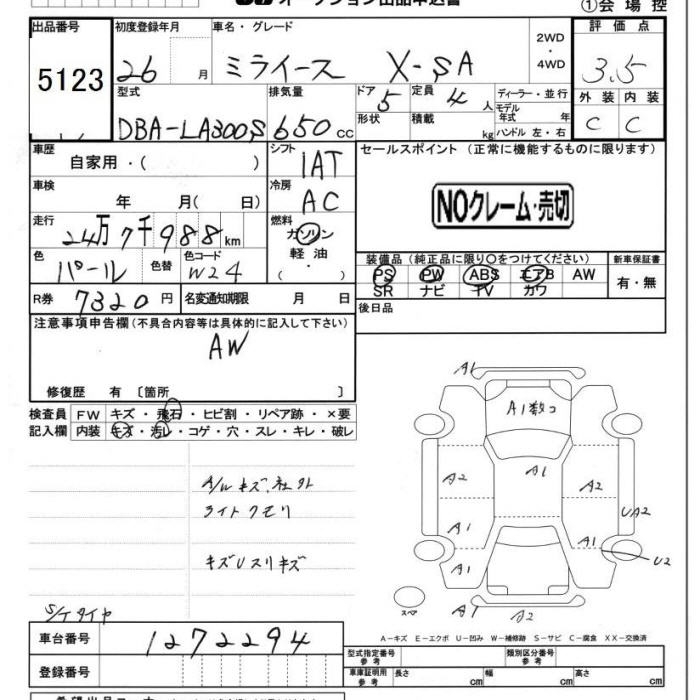 オークション出品申込書
①会場控
出品番号 初度登録年月 車名・グレード 2WD ・ 4WD 評価点
5123 26 月 ミライース X-SA 3.5
型式 排気量 ドア 5 定員 4 人 ディーラー・並行 外装 内装
DBA-LA300S 650 cc 形状 積載 kg モデル年式 年 ハンドル 左・右 C C
車歴 自家用・( ) シフト IAT セールスポイント (正常に機能するものに限ります)
車検 年 月( 日) 冷房 AC
NOクレーム・売切
走行 24万7千988km 燃料 ガソリン 軽油 ・ ( )
色 パール 色替 色コード W24
装備品 (純正品に限り○をつけてください) 新車保証書
PS PW ABS エアB AW 有・無
SR ナビ TV カワ
R券 7320円 名変通知期限 月 日
後日品
注意事項申告欄(不具合内容等は具体的に記入して下さい)
AW
修復歴 有 〔箇所 〕
検査員 FW キズ・飛石・ヒビ割・リペア跡・×要
記入欄 内装 キズ・汚レ・コゲ・穴・スレ・キレ・破レ
A/Wキズ、社外
ライトクモリ
キズUスリキズ
S/Tタイヤ
A1
A1数コ
A2 A1 A2
A1 UA2
A1
A1 A1 U2
スペア
A1 A2
A-キズ E-エクボ U-凹み W-補修跡 S-サビ C-腐食 XX-交換済
車台番号 1272294
型式指定番号 参考 類別区分番号 参考
登録番号 車庫証明用 参考 長さ cm 幅 cm 高さ cm